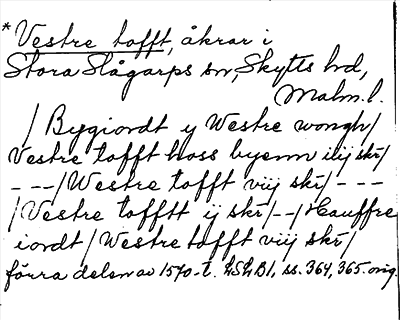 *Vestre tofft, åkrar i
Stora Slågarps sn, Skytts hd,
Malm.l.
/ Bygiordt y Westre wongh/
Vestre tofft hoss byenn iiij skr/
---/Westre tofft viij skr/ ---
/Vestre tofftt ij skr/--/Hauffre
iordt/Westre tofft viij skr/
förra delen av 1570-t. LSLB1, ss. 364, 365. orig.